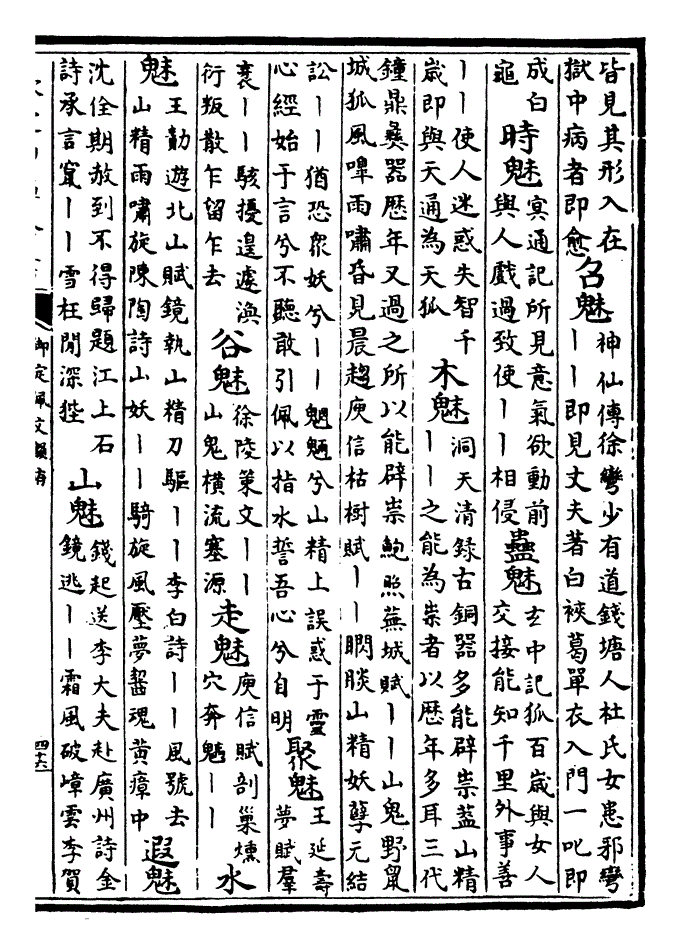 皆見其形入在
獄中病者即愈
召魅
神仙傳徐彎少有道錢塘人杜氏女患邪彎
丨丨即見丈夫著白裌葛單衣入門一叱即
成白
龜
時魅
㝠通記所見意氣欲動前
與人戲過致使丨丨相侵
蠱魅
玄中記狐百歲與女人
交接能知千里外事善
丨丨使人迷惑失智千
歲即與天通為天狐
木魅
洞天清録古銅器多能辟祟葢山精
丨丨之能為祟者以歷年多耳三代
鐘鼎彝器歷年又過之所以能辟祟鮑照蕪城賦丨丨山鬼野鼠
城狐風嘷雨嘯昏見晨趨庾信枯樹賦丨丨睒山精妖孽元結
訟丨丨猶恐眾妖兮丨丨魍魎兮山精上誤惑于靈
心經始于言兮不聽敢引佩以指水誓吾心兮自明
聚魅
王延壽
夢賦羣
衺丨丨駭擾遑遽渙
衍叛散乍留乍去
谷魅
徐陵策文丨丨
山鬼橫流塞源
走魅
庾信賦剖巢燻
穴奔魑丨丨
水
魅
王勃遊北山賦鏡執山精刀驅丨丨李白詩丨丨風號去
山精雨嘯旋陳陶詩山妖丨丨騎旋風壓夢齧魂黄瘴中
遐魅
沈佺期赦到不得歸題江上石
詩承言窺丨丨雪枉聞深狴
山魅
錢起送李大夫赴廣州詩金
鏡逃丨丨霜風破嶂雲李賀
御定佩文韻府
四十六